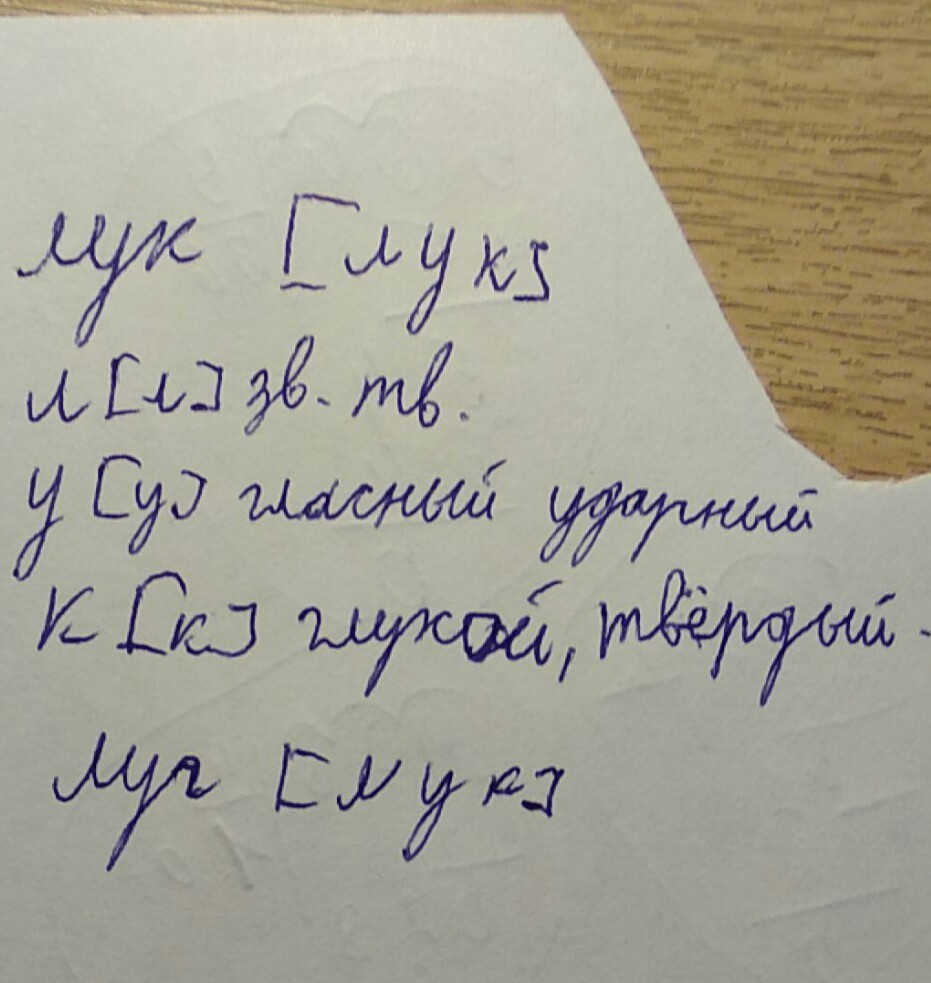 лук [лук]
л [л] зв. тв.
у [у] гласный ударный
к [к] глухой, твёрдый.
луг [лук]